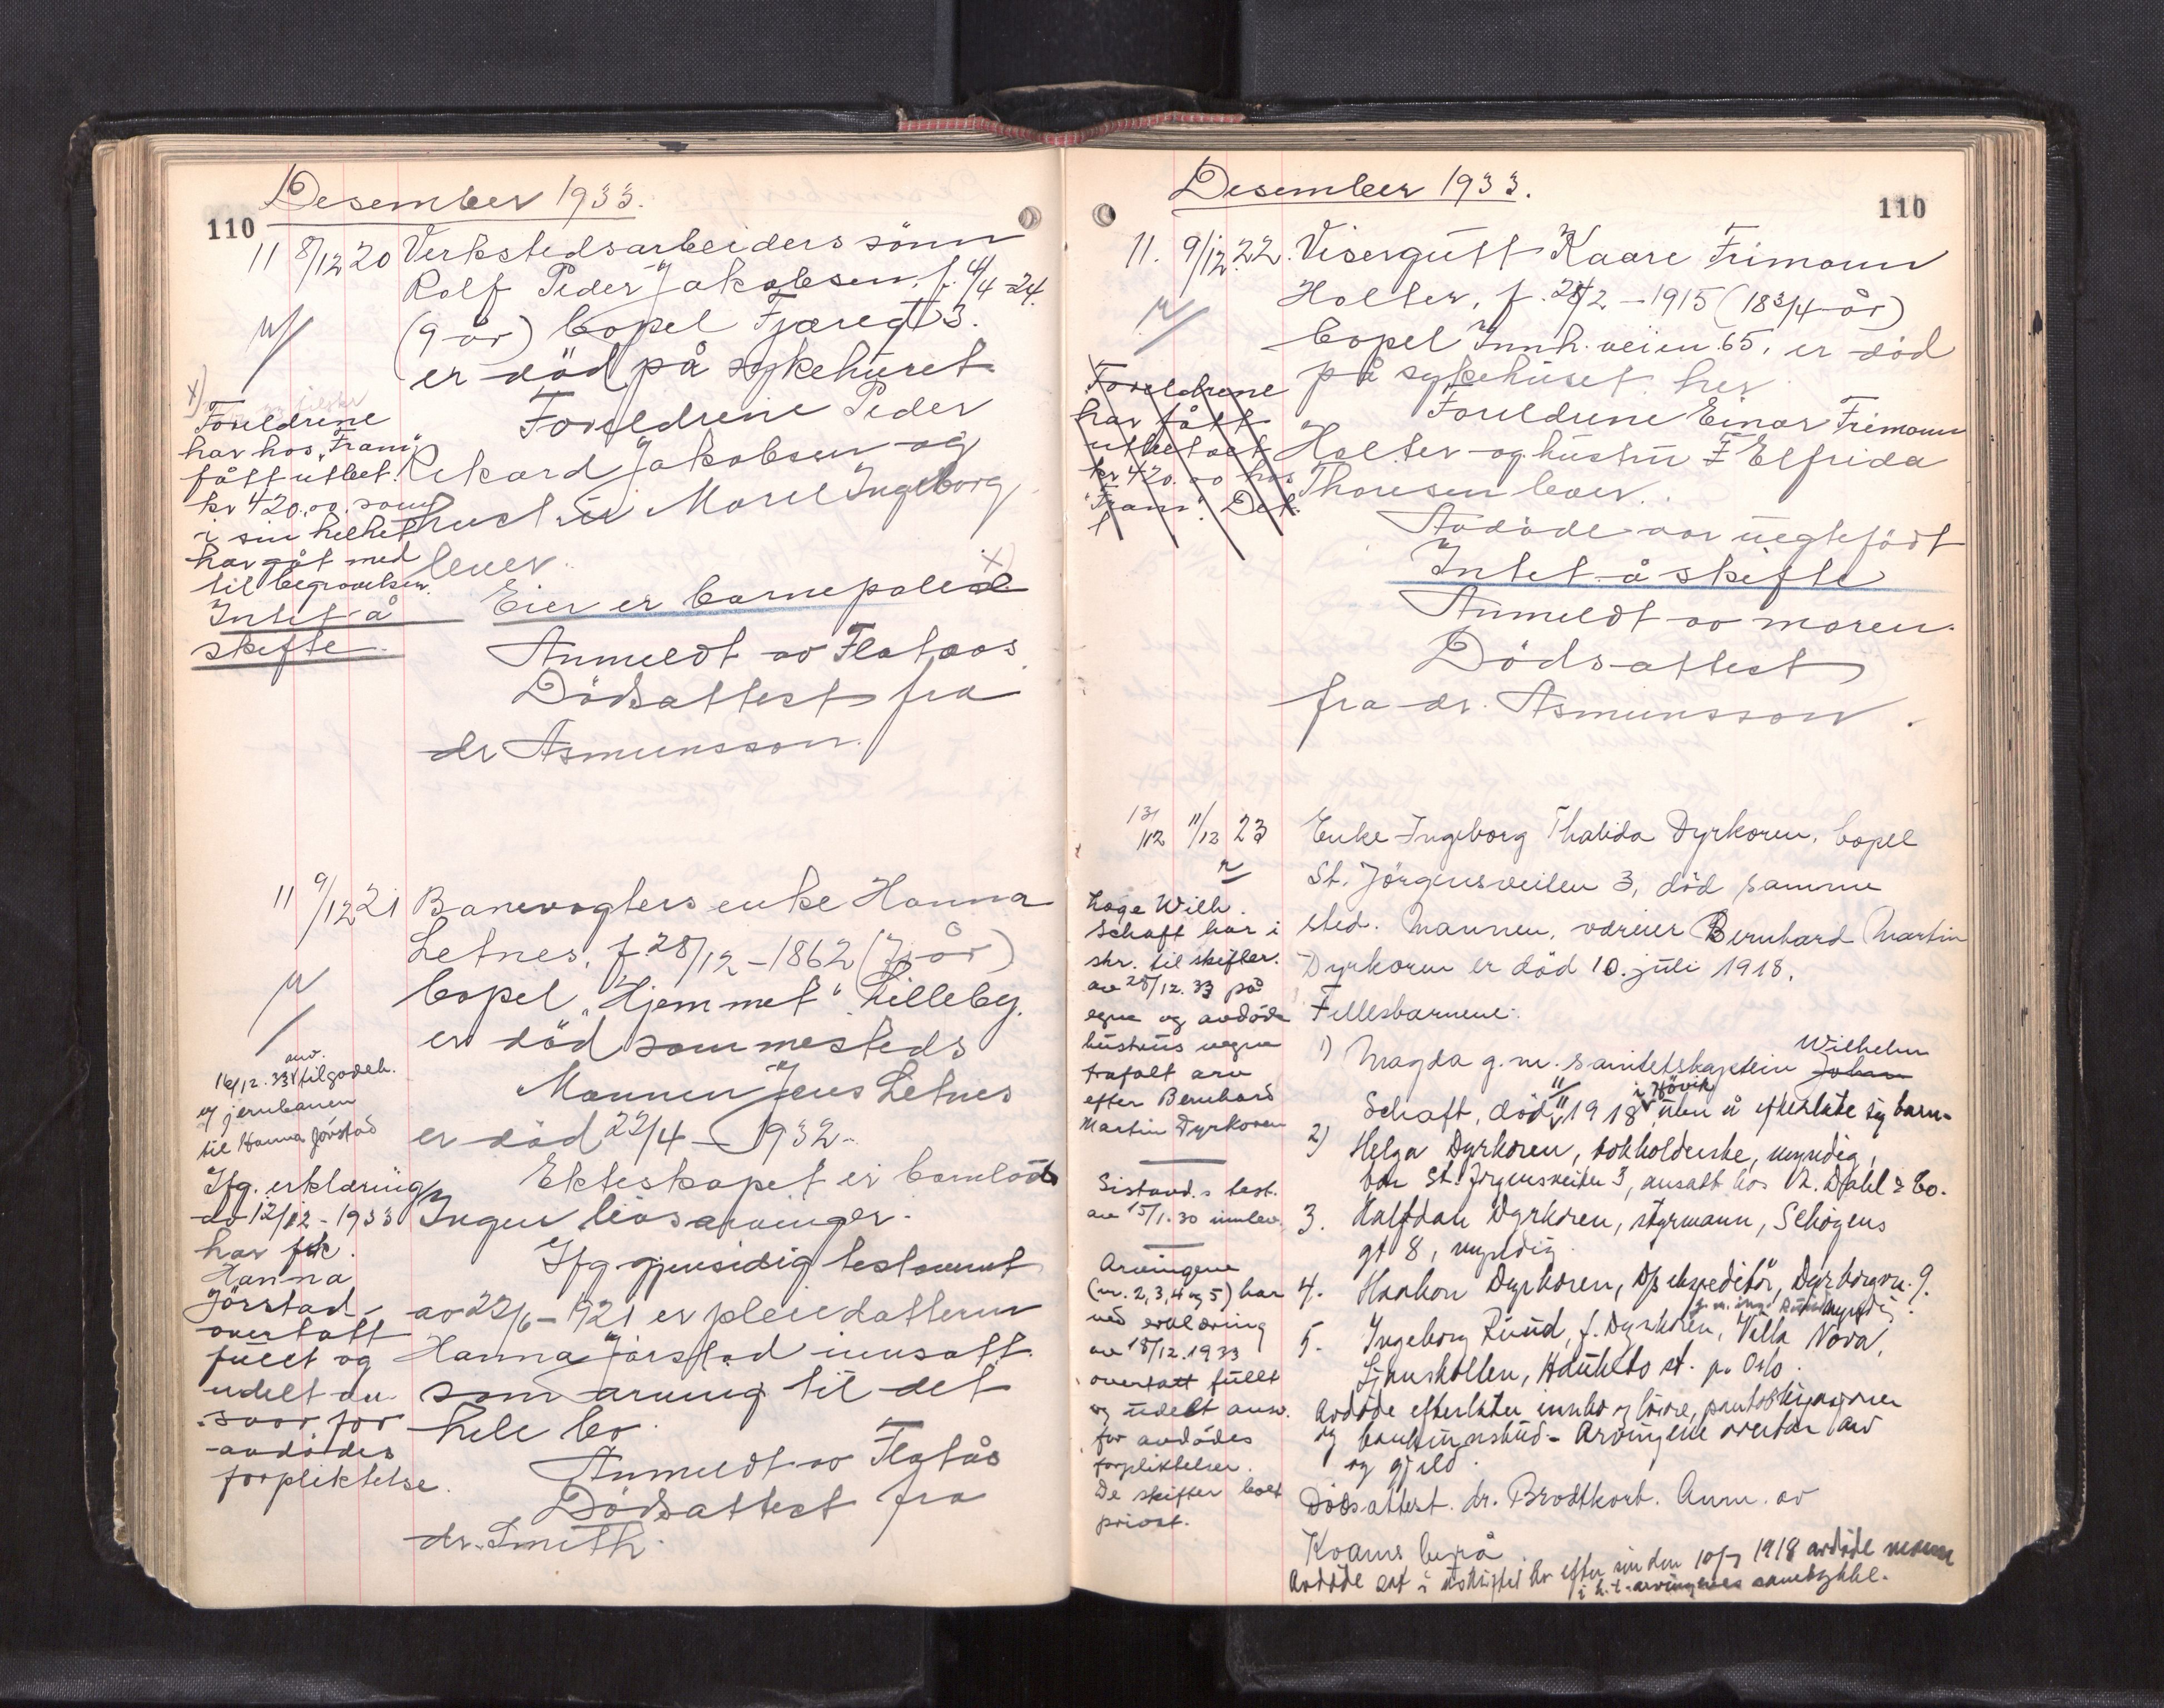 Desember 1933.
110
11 8/12 20 Verkstedsarbeiders sönn
Rolf Peder Jakobsen, f. 4/4-24.
(9 år) bopel Fjæregt 3.
er död på sykehuset
Foreldrene Peder
Rikard Jakobsen og
hustru Marel Ingeborg
lever.
Eier er barnepolise x)
Anmeldt av Flataas
Dödsattest fra
dr Asmunsson.
x)
Foreldrene
har hos "Fram"
fått utbet.
kr 420.00. som
i sin helhet
har gåt med
til begravelsen.
Intet å
skifte.
11 9/12 21 Banevogters enke Hanna
Letnes, f. 28/12-1862 (71 år)
bopel "Hjemmet" Lilleby.
er död sammesteds
Mannen Jens Letnes
er död 22/4-1932-
Ekteskapet er barnlöst
Ingen livsarvinger.
Ifg gjensidig testament
av 22/6-1921 er pleiedatteren
Hanna Jörstad innsatt
som arving til det
hele bo.
Anmeldt av Flatås
Dödsattest fra
dr. Smith.
16/12.33 anv. tilgodeh.
jernbanen
til Hanna Jörstad
Ifg. erklæring
av 12/12-1933
har frk.
Hanna
Jörstad
overtatt
fullt og
udelt an-
svar for
avdödes
forpliktelse.
Desember 1933.
110
11. 9/12. 22. Visergutt Kaare Frimann
Holter, f. 28/2-1915 (18 3/4 år)
bopel Innh. veien 65, er död
på sykehuset her
Foreldrene Einar Frimann
Holter og hustru F Elfrida
Thoresen lever.
Avdöde var uegtefödt
Intet å skifte
Anmeldt av moren.
Dödsattest
fra dr. Asmunsson.
Foreldrene
har fått
utbetalt
kr 420.00 hos
"Fram". Det
13/12 11/12 23 Enke Ingeborg Thalida Dyrkoren, bopel
St. Jörgensveiten 3, död samme
sted. Mannen, Bernhard Martin
Dyrkoren er död 10. juli 1918.
Fellesbarnene:
1) Magda g.m. sanitetskaptein Wilhelm
Schaft, död 1918 i Hövik uten å efterlate sig barn.
2) Helga Dyrkoren, bokholderske, myndig,
bor St. Jörgensveiten 3, ansatt hos R. Dahl & Co.
3. Halfdan Dyrkoren, styrmann, Schögens
gt 8, myndig
4. Haakon Dyrkoren, D/S ekspeditör, Dyrborgvn. 9.
myndig
5. Ingeborg Ruud, f. Dyrkoren, Villa Nova,
Ljanskollen, Hauketo st. pr. Oslo.
Avdöde efterlater innbo og lösöre, pantobligasjoner
og bankinnskud - Arvingene overtar arv
og gjeld.
Dödsattest. dr. Brodtkorb. Anm. av
Kvams byrå
Avdöde sat i uskiftet bo efter sin den 10/7 1918 avdöde mann
i h. t. arvingenes samtykke.
Wilh.
Schaft har i
skr. til skifter.
av 28/12.33 på
egne og avdöde
hustrus vegne
frafalt arv
efter Bernhard
Martin Dyrkoren
Sistavd.s test.
av 15/1.30 innlev.
Arvingene
(nr. 2, 3, 4 og 5) har
ved erklæring
av 18/12.1933
overtatt fullt
og udelt ansv.
for avdödes
forpliktelser.
De skifter boet
privat.